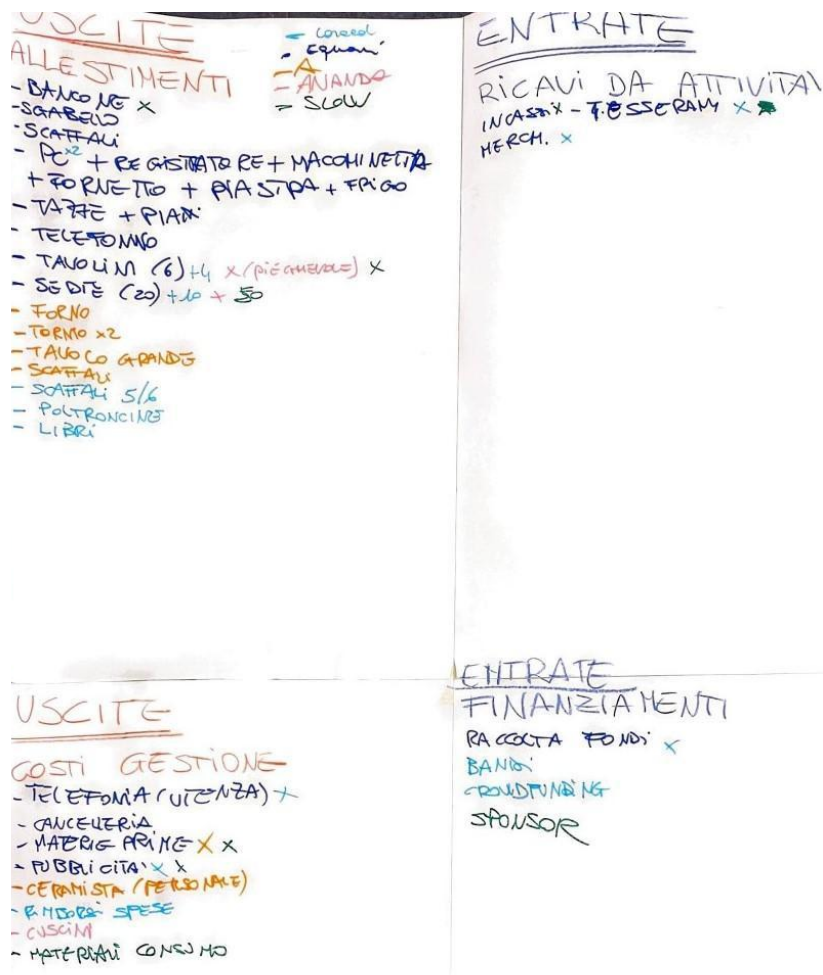 USCITE
ALLESTIMENTI
- Equani
- A
- ANANDA
- SLOW
- BANCONE x
- SGABELLO
- SCAFFALI
- PC x2 + REGISTRATORE + MACCHINETTA
+ FORNETTO + PIASTRA + FRIGO
- TAZZE + PIATTI
- TELEFONINO
- TAVOLINI (6) +4 x (PIEGHEVOLE) x
- SEDIE (20) +10 + 50
- FORNO
- TORNIO x2
- TAVOLO GRANDE
- SCAFFALI
- SCAFFALI 5/6
- POLTRONCINE
- LIBRI
ENTRATE
RICAVI DA ATTIVITÀ
INCASSI x - TESSERAM x
MERCH. x
USCITE
COSTI GESTIONE
- TELEFONIA (UTENZA) x
- CANCELLERIA
- MATERIE PRIME x x
- PUBBLICITA' x x
- CERAMISTA (PERSONALE)
- RIMBORSI SPESE
- CUSCINI
- MATERIALI CONSUMO
ENTRATE
FINANZIAMENTI
RACCOLTA FONDI x
BANDI
CROWDFUNDING
SPONSOR